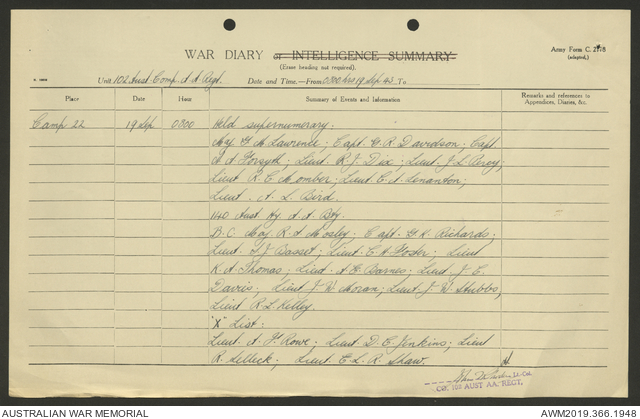 WAR DIARY or INTELLIGENCE SUMMARY
(Erase heading not required).
Army Form C. 2118
(adapted.)
Unit 102 Aust. Comp. A A Regt. Date and Time.—From 0000 hrs 19 Sep 43 To
Place Date Hour Summary of Events and Information Remarks and references to
Appendices, Diaries, &c.
Camp 22 19 Sep 0000 Held supernumerary.
Maj. Lawrence; Capt. R Davidson; Capt.
A Forsyth; Lieut R. J. Dix; Lieut. J. L. Percy;
Lieut R. E. Momber; Lieut C. A. Lenanton;
Lieut. A. L. Bird.
140 Aust Hy A. A. Bty.
B. C. Maj. R. A. Mosley; Capt. K. Richards;
Lieut J Basset; Lieut C. H Foster; Lieut
K. A. Thomas; Lieut A Barnes; Lieut J. E.
Davis; Lieut J. W. Moran; Lieut J. W. Stubbs;
Lieut R. L. Kelley.
"X" List:
Lieut. A. J. Rowe; Lieut. D. E. Jenkins; Lieut
R. Lelleck; Lieut E. L. R. Shaw.
Lt-Col
CO. 102 AUST AA. REGT.
AUSTRALIAN WAR MEMORIAL
AWM2019.366.1948